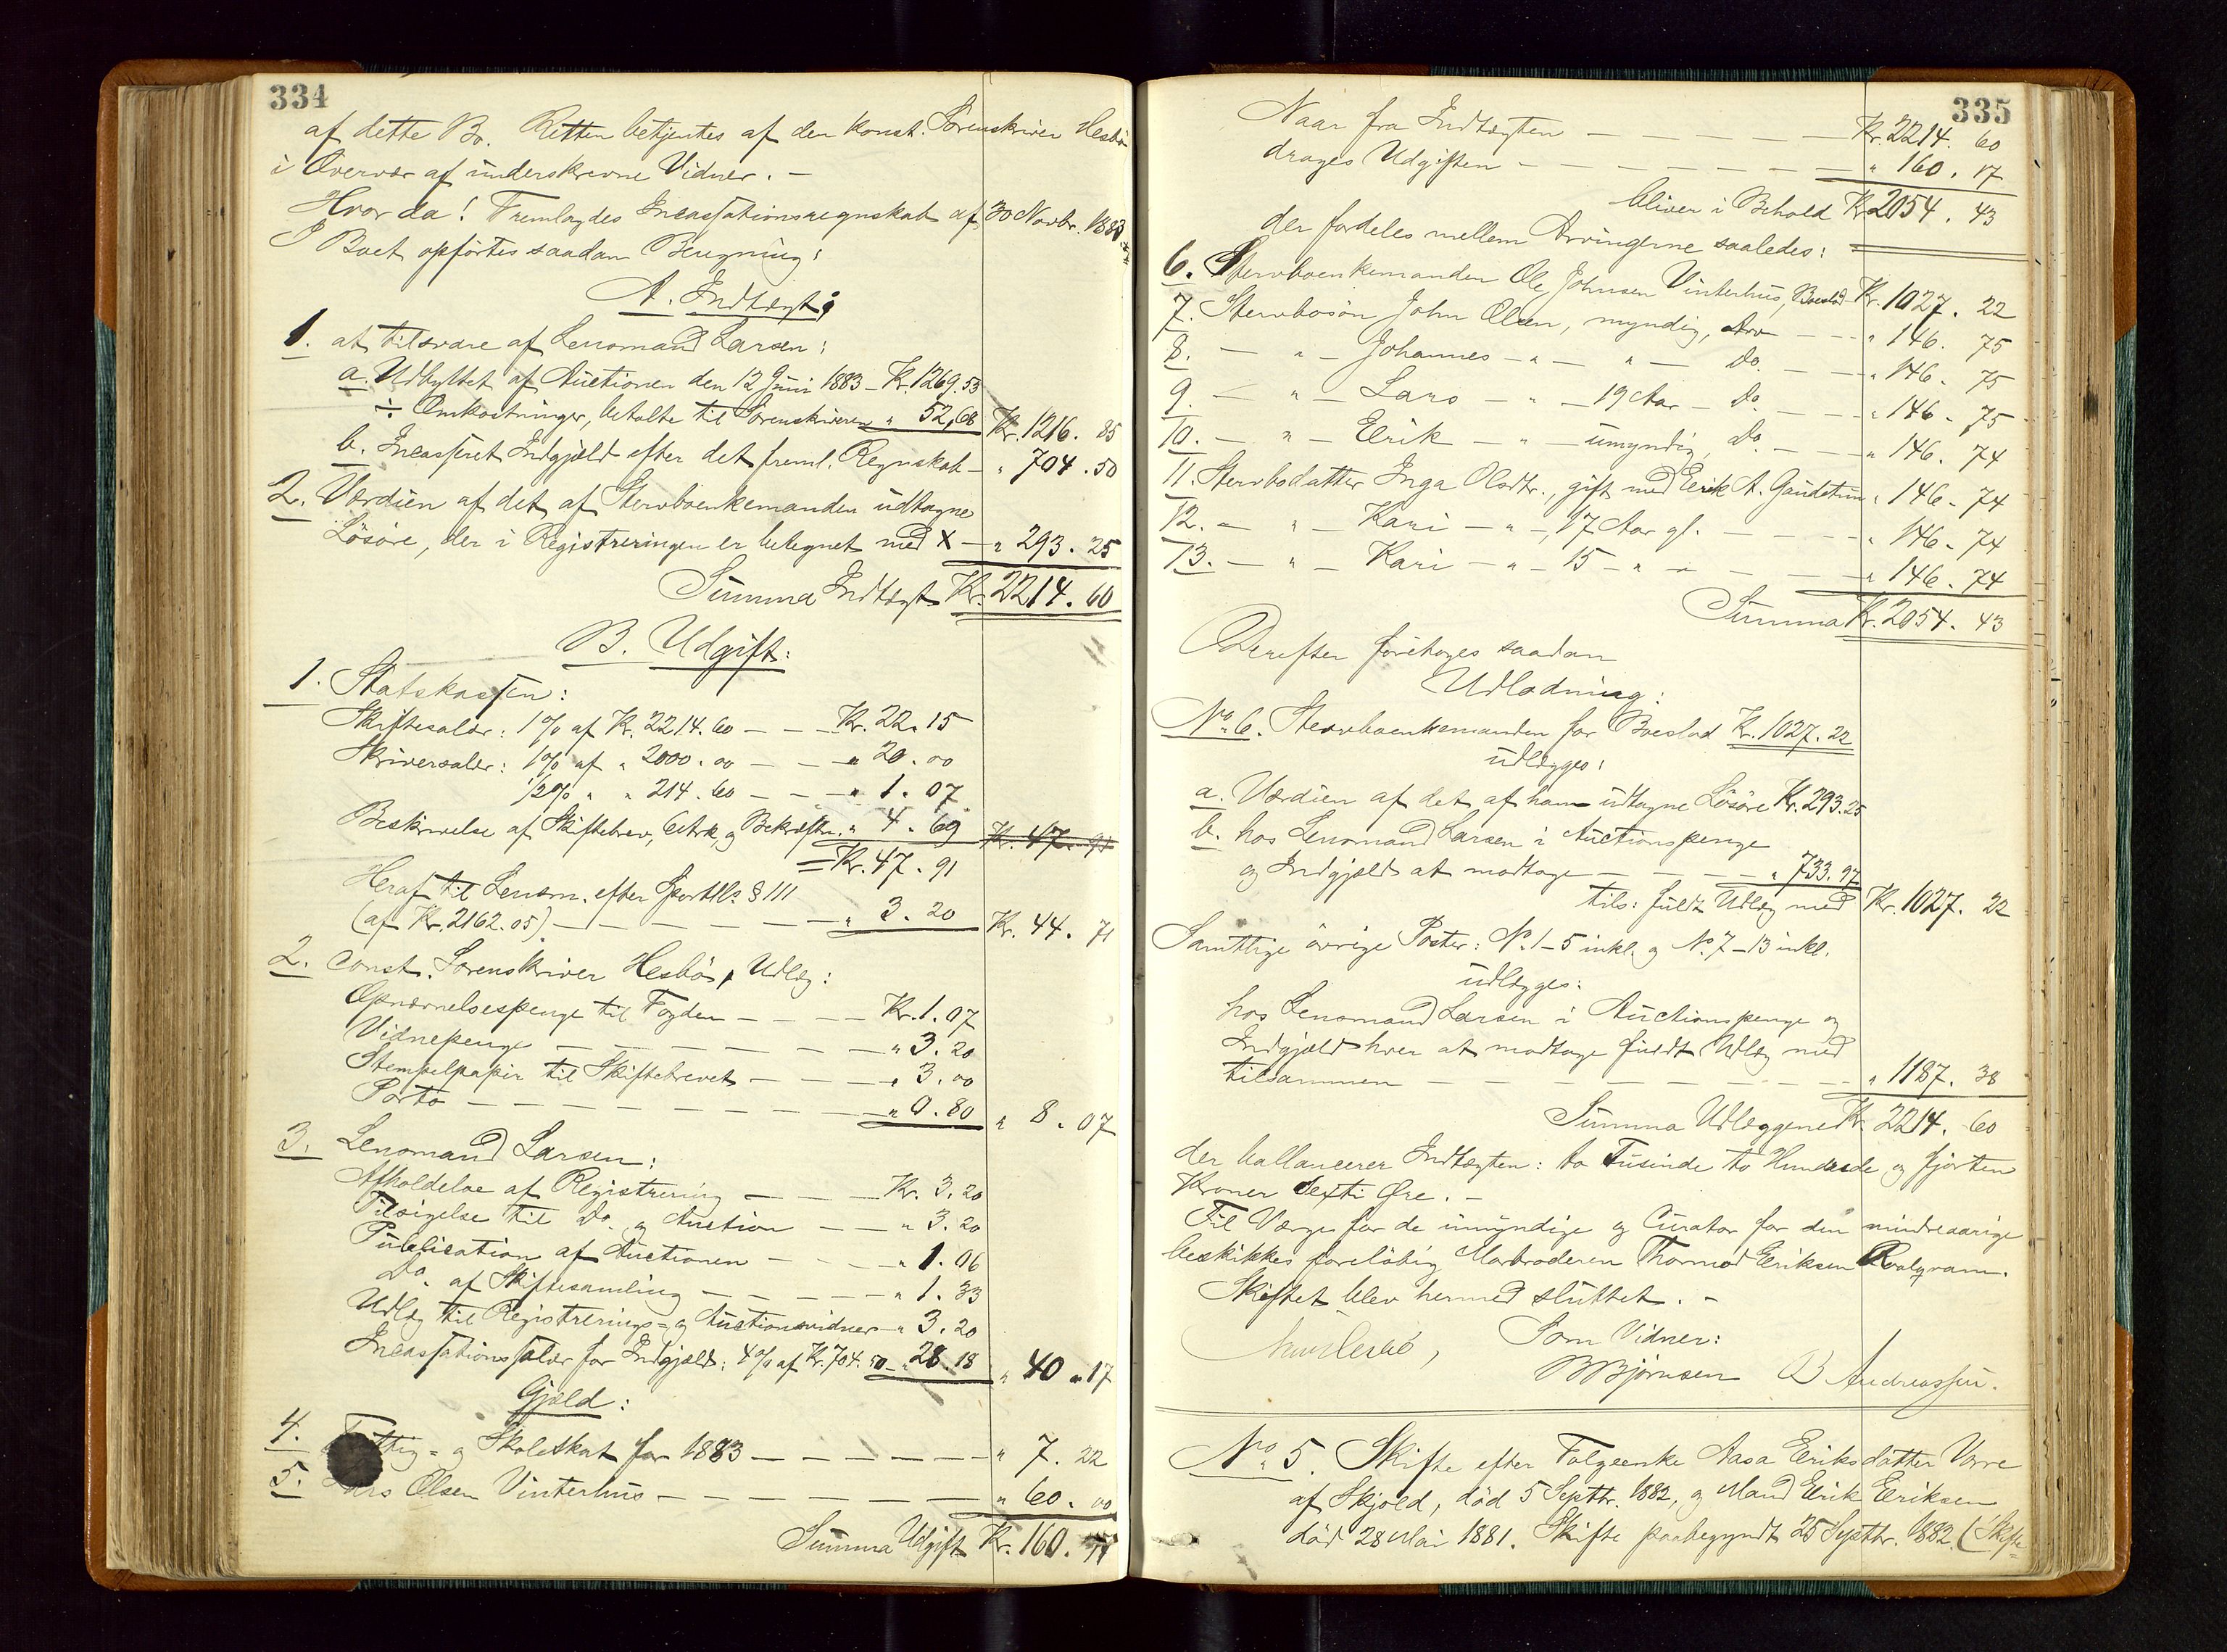 334
af dette Bo. Retten betjentes af den konst. Sorenskriver Hesbö
i Overvær af underskrevne Vidner. —
Hvorda! Fremlagdes Incassationsregnskab af 30 Novbr. 1883.
I Boet opförtes saadan Beregning:
A. Indtægt:
1. at tilsvare af Lensmand Larsen:
a. Udbyttet af Auctionen den 12 Juni 1883 – Kr. 1269.53
÷ Omkostninger, betalte til Sorenskriveren " 52,68 Kr. 1216. 85
b. Incasseret Indgjæld efter det freml. Regnskab – " 704. 50
2. Værdien af det af Stervboenkemanden udtagne
Lösöre, der i Registreringen er betegnet med X — " 293. 25
Summa Indtægt Kr. 2214. 60
B. Udgift:
1. Statskassen:
Skiftesalær: 1% af Kr. 2214. 60 — — — Kr. 22. 15
Skriversalær: 1% af " 2000. 00 — — " 20. 00
1/2% " " 214. 60 — — — " 1. 07
Beskrivelse af Skiftebrev, 6 Ark, og Bekræftn. " 4. 69 Kr. 47. 91
= Kr. 47. 91
Heraf til Lensm. efter Sportlls § 111
(af Kr. 2162. 05) — — — — — " 3. 20 Kr. 44. 71
2. const. Sorenskriver Hesbö, Udlæg:
Opnævnelsespenge til Fogden — — — Kr. 1. 07
Vidnepenge — — — — — — " 3. 20
Stempelpapir til Skiftebrevet — — — " 3. 00
Porto — — — — — — — " 0. 80 " 8. 07
3. Lensmand Larsen:
Afholdelse af Registrering — — — Kr. 3. 20
Tilsigelse til Do. og Auction — — " 3. 20
Publication af Auctionen — — — " 1. 06
Do. af Skiftesamling — — — — " 1. 33
Udlæg til Registrerings- og Auctionsvidner — " 3. 20
Incassationssalær for Indgjæld: 4% af Kr. 704. 50 – " 28. 18 " 40. 17
Gjæld:
4. Fattig- og Skoleskat for 1883 — — — — — " 7. 22
5. Lars Olsen Vinterhus — — — — — — " 60. 00
Summa Udgift Kr. 160. 17
335
Naar fra Indtægten — — — — — Kr. 2214. 60
drages Udgiften — — — — — — " 160. 17
bliver i Behold Kr. 2054. 43
der fordeles mellem Arvingerne saaledes:
6. Stervboenkemanden Ole Johnsen Vinterhus, Boeslod Kr. 1027. 22
7. Stervbosön John Olsen, myndig, Arv — — — " 146. 75
8. — " — Johannes — " — " — Do. — — " 146. 75
9. — " — Lars — " — 19 Aar — Do. — — " 146. 75
10. — " — Eerik — " — umyndig, Do. — — " 146. 74
11. Stervbodatter Inga Olsdtr., gift med Eerik A. Gaudetun " 146. 74
12. — " — Kari — " —, 17 Aar gl. — — — — " 146. 74
13. — " — Kari — " — 15 — " " — — — " 146. 74
Summa Kr. 2054. 43
Derefter foretoges saadan
Udlodning:
No. 6. Stervboenkemanden for Boeslod Kr. 1027. 22
udlægges:
a. Værdien af det af ham udtagne Lösöre Kr. 293. 25
b. hos Lensmand Larsen i Auctionspenge
og Indgjæld at modtage — — — — " 733. 97
tils: fuldt Udlæg med Kr. 1027. 22
Samtlige övrige Poster: No. 1–5 inkl. og No. 7–13 inkl.
udlægges:
hos Lensmand Larsen i Auctionspenge og
Indgjæld hver at modtage fuldt Udlæg med
tilsammen — — — — — — — " 1187. 38
Summa Udlæggene Kr. 2214. 60
der ballancerer Indtægten: to Tusinde to Hundrede og fjorten
Kroner sexti Öre. —
Til Værge for de umyndige og Curator for den mindreaarige
beskikkes forelöbig Morbroderen Thormod Eriksen
Skiftet blev hermed sluttet. —
Som Vidner:
BBjørnsen B Andreassen.
No. 5. Skifte efter Folgeenke Aasa Eeriksdatter Vorre
af Skjold, död 5 Septbr. 1882, og Mand Eerik Eeriksen
död 28 Mai 1881. Skifte paabegyndt 25 Septbr. 1882. (Skifte-